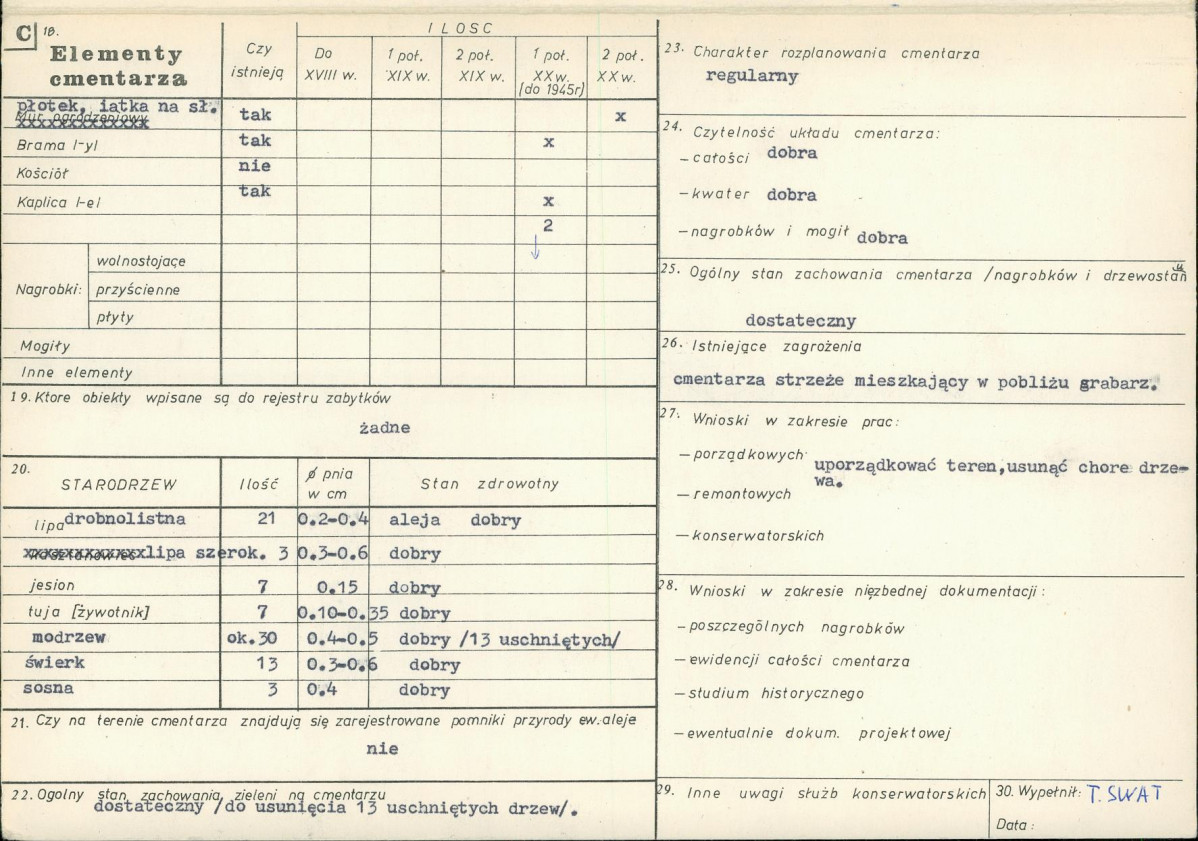 C 18.
Elementy
cmentarza
Czy
istnieją
ILOSC
Do
XVIII w.
1 poł.
XIX w.
2 poł.
XIX w.
1 poł.
XX w.
[do 1945r]
2 poł.
XX w.
płotek, iatka na sł.
Mur ogrodzeniowy tak x
xxxxxxxxxxxxx
Brama l-yl tak x
Kościół nie
Kaplica l-el tak x
2
Nagrobki:
wolnostojące
przyścienne
płyty
Mogiły
Inne elementy
19. Ktore obiekty wpisane są do rejestru zabytków
żadne
20.
STARODRZEW Ilość ø pnia
w cm Stan zdrowotny
lipa drobnolistna 21 0.2-0.4 aleja dobry
xxxxxxxxxxxxxlipa szerok. 3 0.3-0.6 dobry
jesion 7 0.15 dobry
tuja [żywotnik] 7 0.10-0.35 dobry
modrzew ok.30 0.4-0.5 dobry /13 uschniętych/
świerk 13 0.3-0.6 dobry
sosna 3 0.4 dobry
21. Czy na terenie cmentarza znajdują się zarejestrowane pomniki przyrody ew. aleje
nie
22. Ogolny stan zachowania zieleni na cmentarzu
dostateczny /do usunięcia 13 uschniętych drzew/.
23. Charakter rozplanowania cmentarza
regularny
24. Czytelność układu cmentarza:
– całości dobra
– kwater dobra
– nagrobków i mogił dobra
25. Ogólny stan zachowania cmentarza /nagrobków i drzewostanu
dostateczny
26. Istniejące zagrożenia
cmentarza strzeże mieszkający w pobliżu grabarz.
27. Wnioski w zakresie prac:
– porządkowych uporządkować teren,usunąć chore drze-
wa.
– remontowych
– konserwatorskich
28. Wnioski w zakresie niezbednej dokumentacji:
– poszczególnych nagrobków
– ewidencji całości cmentarza
– studium historycznego
– ewentualnie dokum. projektowej
29. Inne uwagi służb konserwatorskich
30. Wypełnił: T. SWAT
Data: